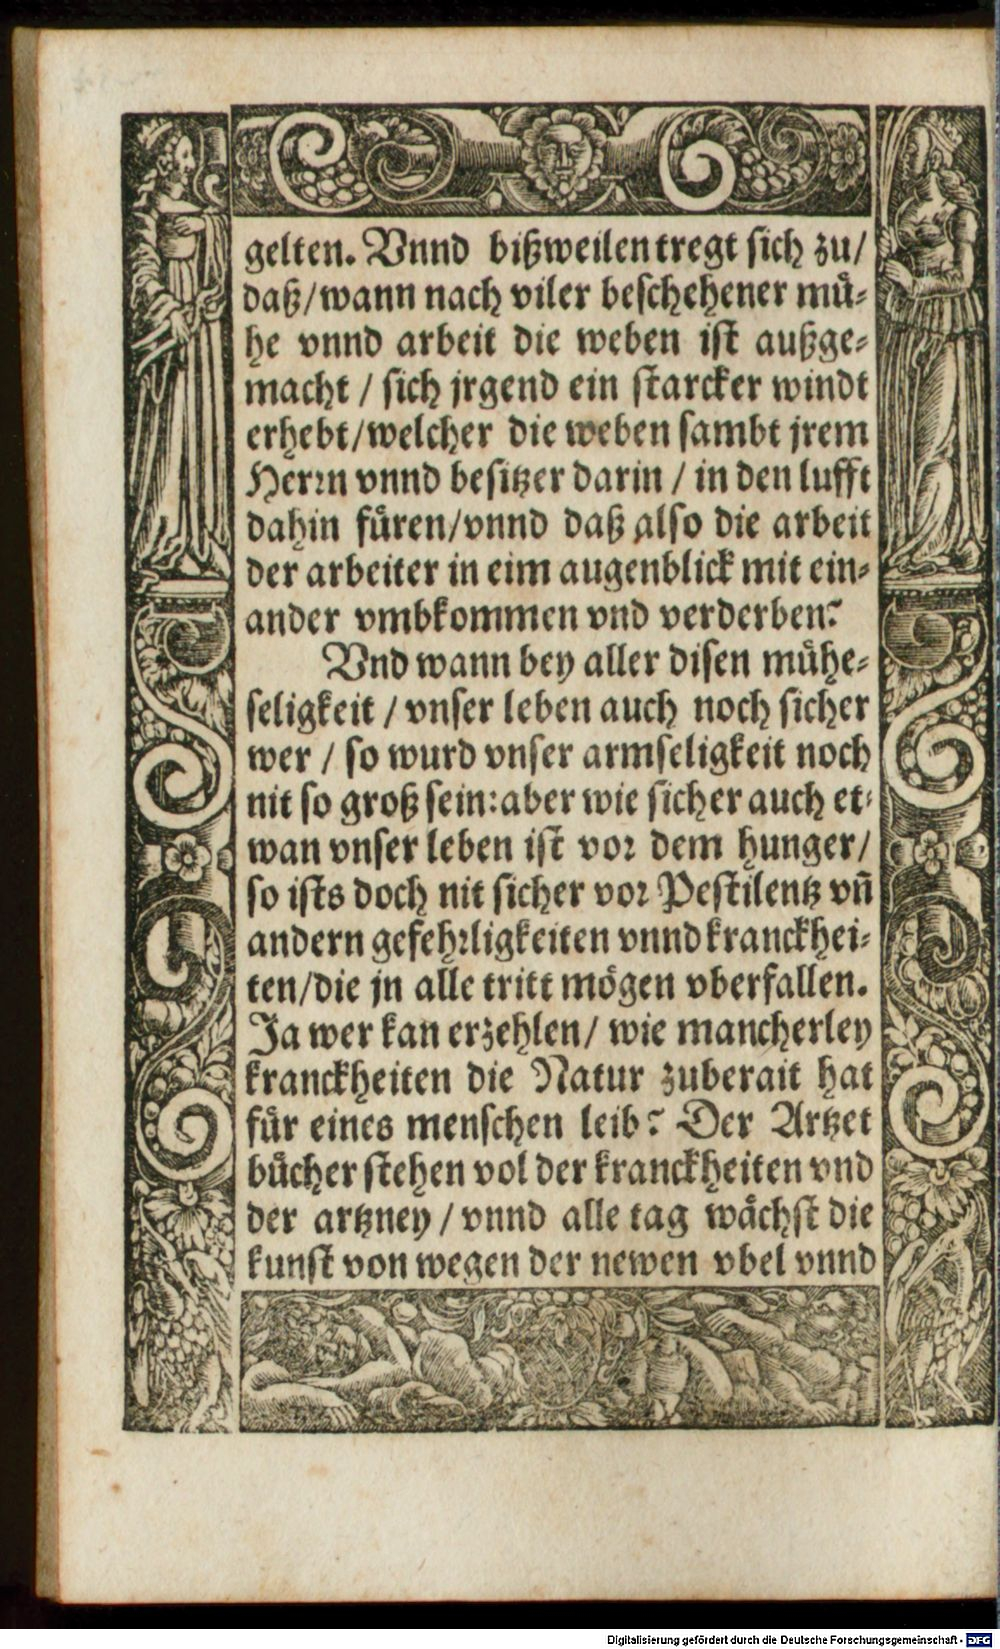 gelten. Vnnd bißweilen tregt sich zu/
daß/wann nach viler beschehener muͤ⸗
he vnnd arbeit die weben ist außge⸗
macht / sich jrgend ein starcker windt
erhebt/welcher die weben sambt jrem
Herꝛn vnnd besitzer darin / in den lufft
dahin fuͤren/vnnd daß also die arbeit
der arbeiter in eim augenblick mit ein⸗
ander vmbkommen vnd verderben?
Vnd wann bey aller disen muͤhe⸗
seligkeit / vnser leben auch noch sicher
wer / so wurd vnser armseligkeit noch
nit so groß sein:aber wie sicher auch et⸗
wan vnser leben ist voꝛ dem hunger/
so ists doch nit sicher voꝛ Pestilentz vñ
andern gefehꝛligkeiten vnnd kranckhei⸗
ten/die jn alle tritt moͤgen vberfallen.
Ja wer kan erzehlen/ wie mancherley
kranckheiten die Natur zuberait hat
fuͤr eines menschen leib? Der Artzet
buͤcher stehen vol der kranckheiten vnd
der artzney / vnnd alle tag waͤchst die
kunst von wegen der newen vbel vnnd
Digitalisierung gefördert durch die Deutsche Forschungsgemeinschaft - DFG